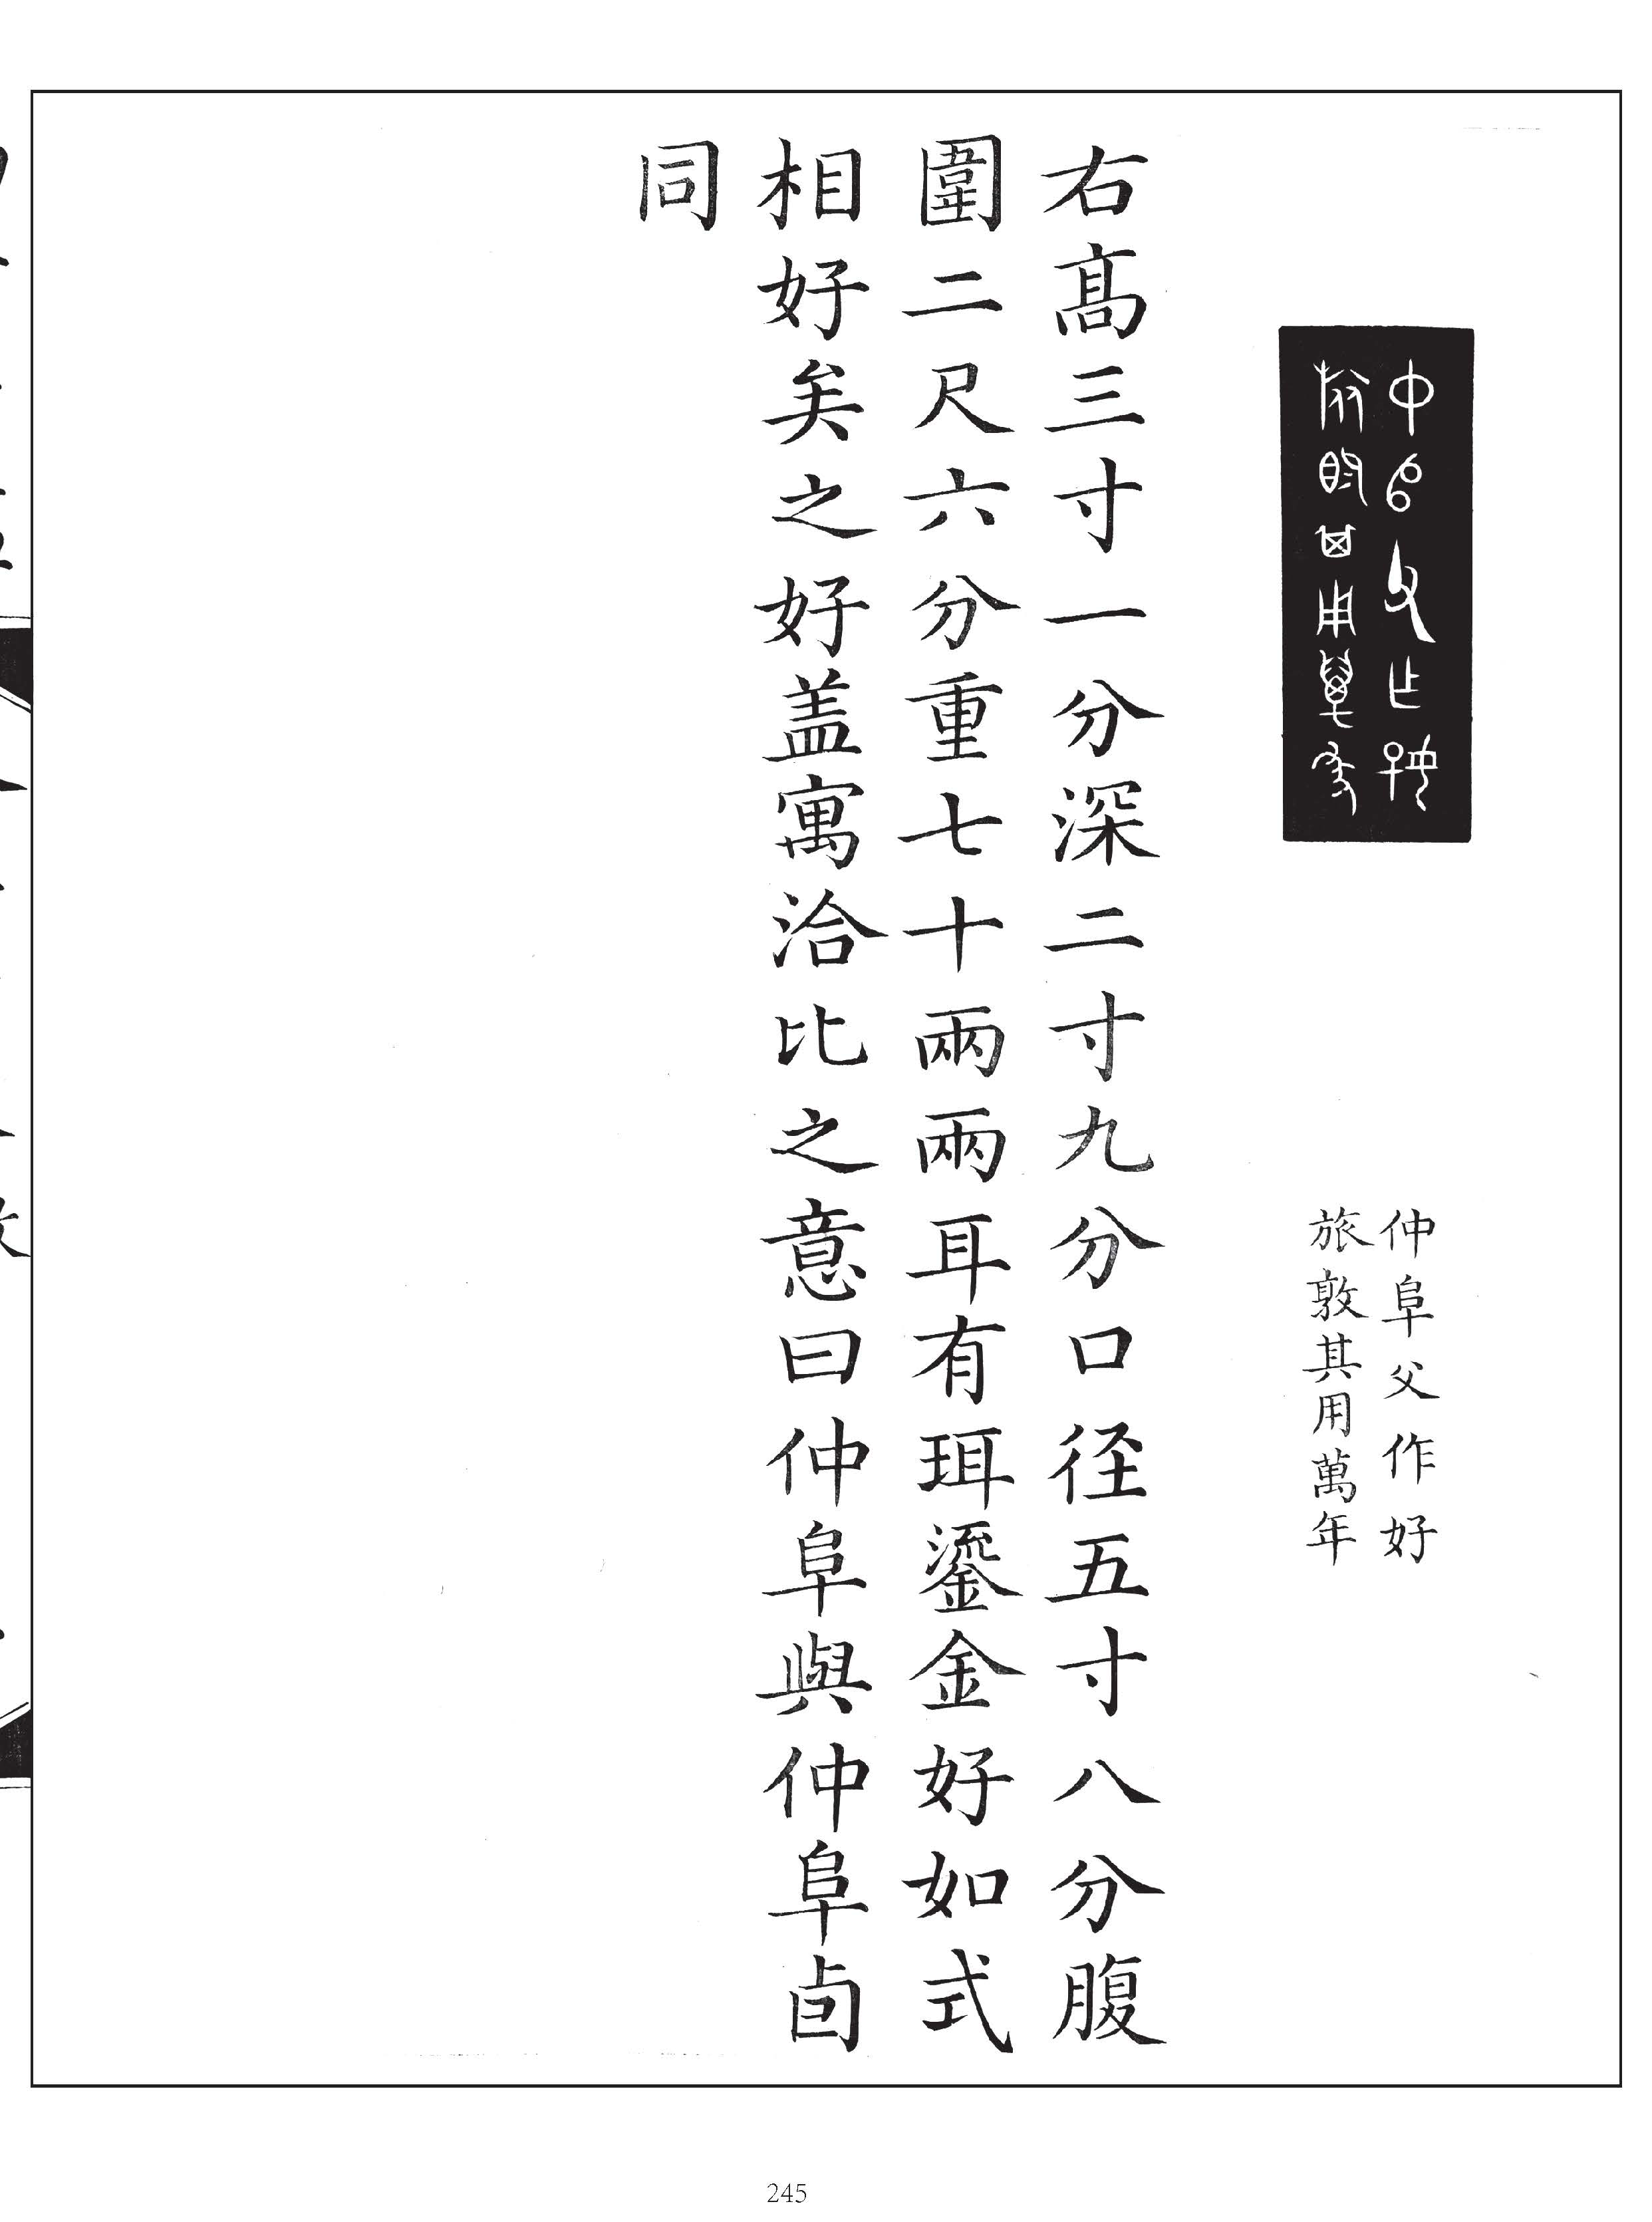 仲阜父作好
旅敦其用萬年
右髙三寸一分深二寸九分口径五寸八分腹
圍二尺六分重七十兩兩耳有珥鎏金好如式
相好矣之好盖寓洽比之意曰仲阜與仲阜卣
同
245